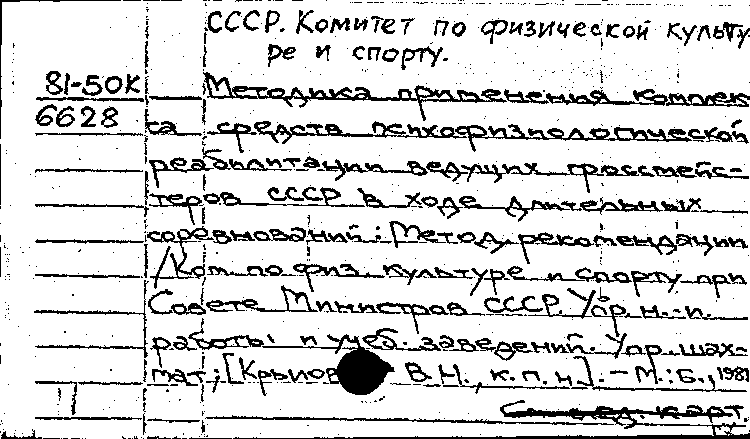 СССР. Комитет по физической культу
ре и спорту.
81-50К
Методика применения комплек
6628
са средств психофизиологической
реабилитации ведущих гроссмейс-
теров СССР в ходе длительных
соревнований: Метод. рекомендации
/Ком. по физ. культуре и спорту при
Совете Министров СССР. Упр. н.-и.
работы и учеб. заведений. Упр. шах-
мат; [Крылов В.Н., к.п.н.]. – М.: Б., 1981
См. след. карт.